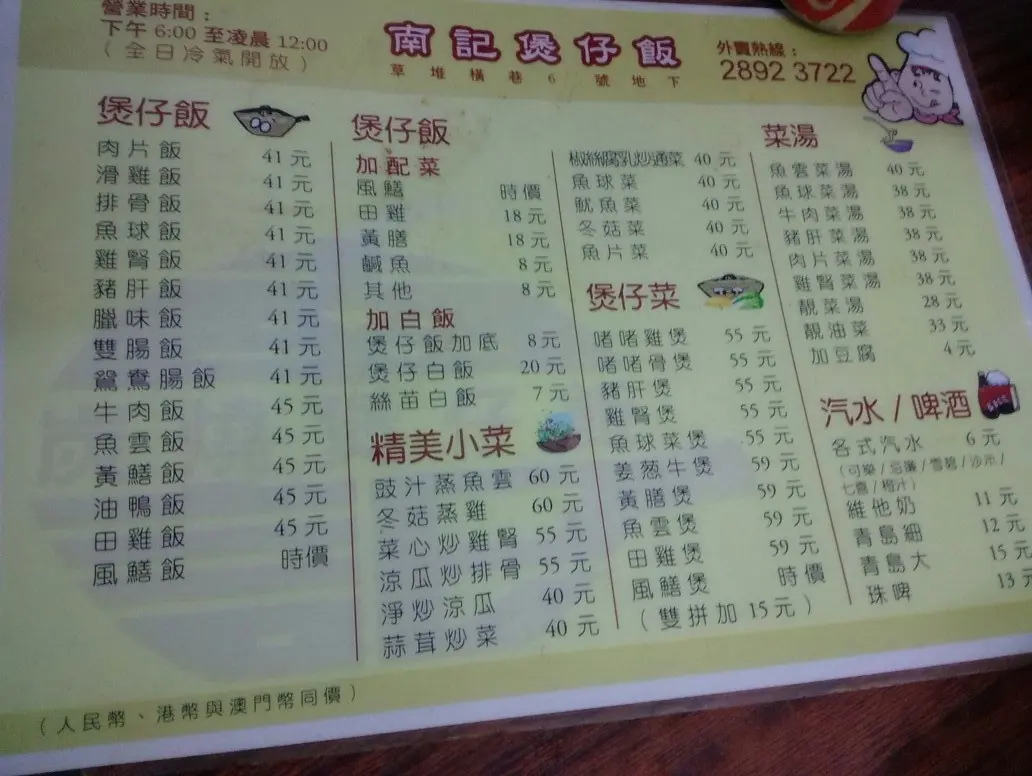 營業時間：
下午 6:00 至凌晨 12:00
（全日冷氣開放）
南記煲仔飯
草堆橫巷6號地下
外賣熱線：
2892 3722
煲仔飯
肉片飯 41元
滑雞飯 41元
排骨飯 41元
魚球飯 41元
雞腎飯 41元
豬肝飯 41元
臘味飯 41元
雙腸飯 41元
鴛鴦腸飯 41元
牛肉飯 45元
魚雲飯 45元
黃鱔飯 45元
油鴨飯 45元
田雞飯 45元
風鱔飯 時價
煲仔飯
加配菜
風鱔 時價
田雞 18元
黃膳 18元
鹹魚 8元
其他 8元
加白飯
煲仔飯加底 8元
煲仔白飯 20元
絲苗白飯 7元
精美小菜
豉汁蒸魚雲 60元
冬菇蒸雞 60元
菜心炒雞腎 55元
涼瓜炒排骨 55元
淨炒涼瓜 40元
蒜茸炒菜 40元
椒絲腐乳炒通菜 40元
魚球菜 40元
魷魚菜 40元
冬菇菜 40元
魚片菜 40元
煲仔菜
啫啫雞煲 55元
啫啫骨煲 55元
豬肝煲 55元
雞腎煲 55元
魚球菜煲 55元
姜葱牛煲 59元
黃膳煲 59元
魚雲煲 59元
田雞煲 59元
風鱔煲 時價
（雙拼加15元）
菜湯
魚雲菜湯 40元
魚球菜湯 38元
牛肉菜湯 38元
豬肝菜湯 38元
肉片菜湯 38元
雞腎菜湯 38元
靚菜湯 28元
靚油菜 33元
加豆腐 4元
汽水/啤酒
各式汽水 6元
（可樂/忌廉/雪碧/沙示/
七喜/橙汁）
維他奶 11元
青島細 12元
青島大 15元
珠啤 13元
（人民幣、港幣與澳門幣同價）